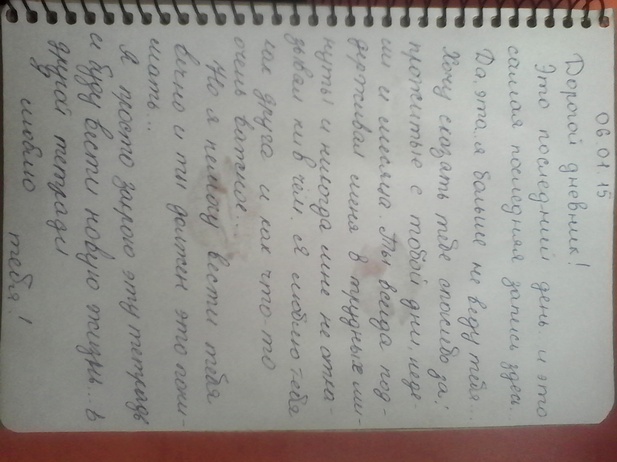 06.01.15
Дорогой дневник!
Это последний день.. и это
самая последняя запись здесь.
Да, эта, я больше не веду тебя...
Хочу сказать тебе спасибо за:
прожитые с тобой дни, неде-
ли и месяца. Ты всегда под-
держивал меня в трудных ми-
нуты и никогда мне не отка-
зывал ни в чем. Я люблю тебя
как друга и как что то
очень важное...
Но я немогу вести тебя
вечно и ты должен это пони-
мать...
Я просто зарою эту тетрадь
и буду вести новую жизнь... в
другой тетради
люблю тебя!